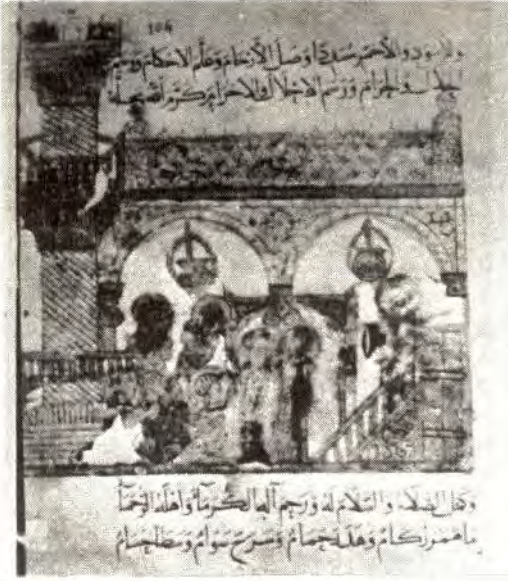 وللاسود والأحمر مسددا وصل الأرحام وعلم الاحكام ووسم
الحلال والحرام ورسم الاحلال والاحرام كرم الله محله
وكمل الصلاة والسلام له ورحم آله الكرماء وأهله الرحماء
ما همر ركام وهدر حمام وسرح سوام وسطا حسام